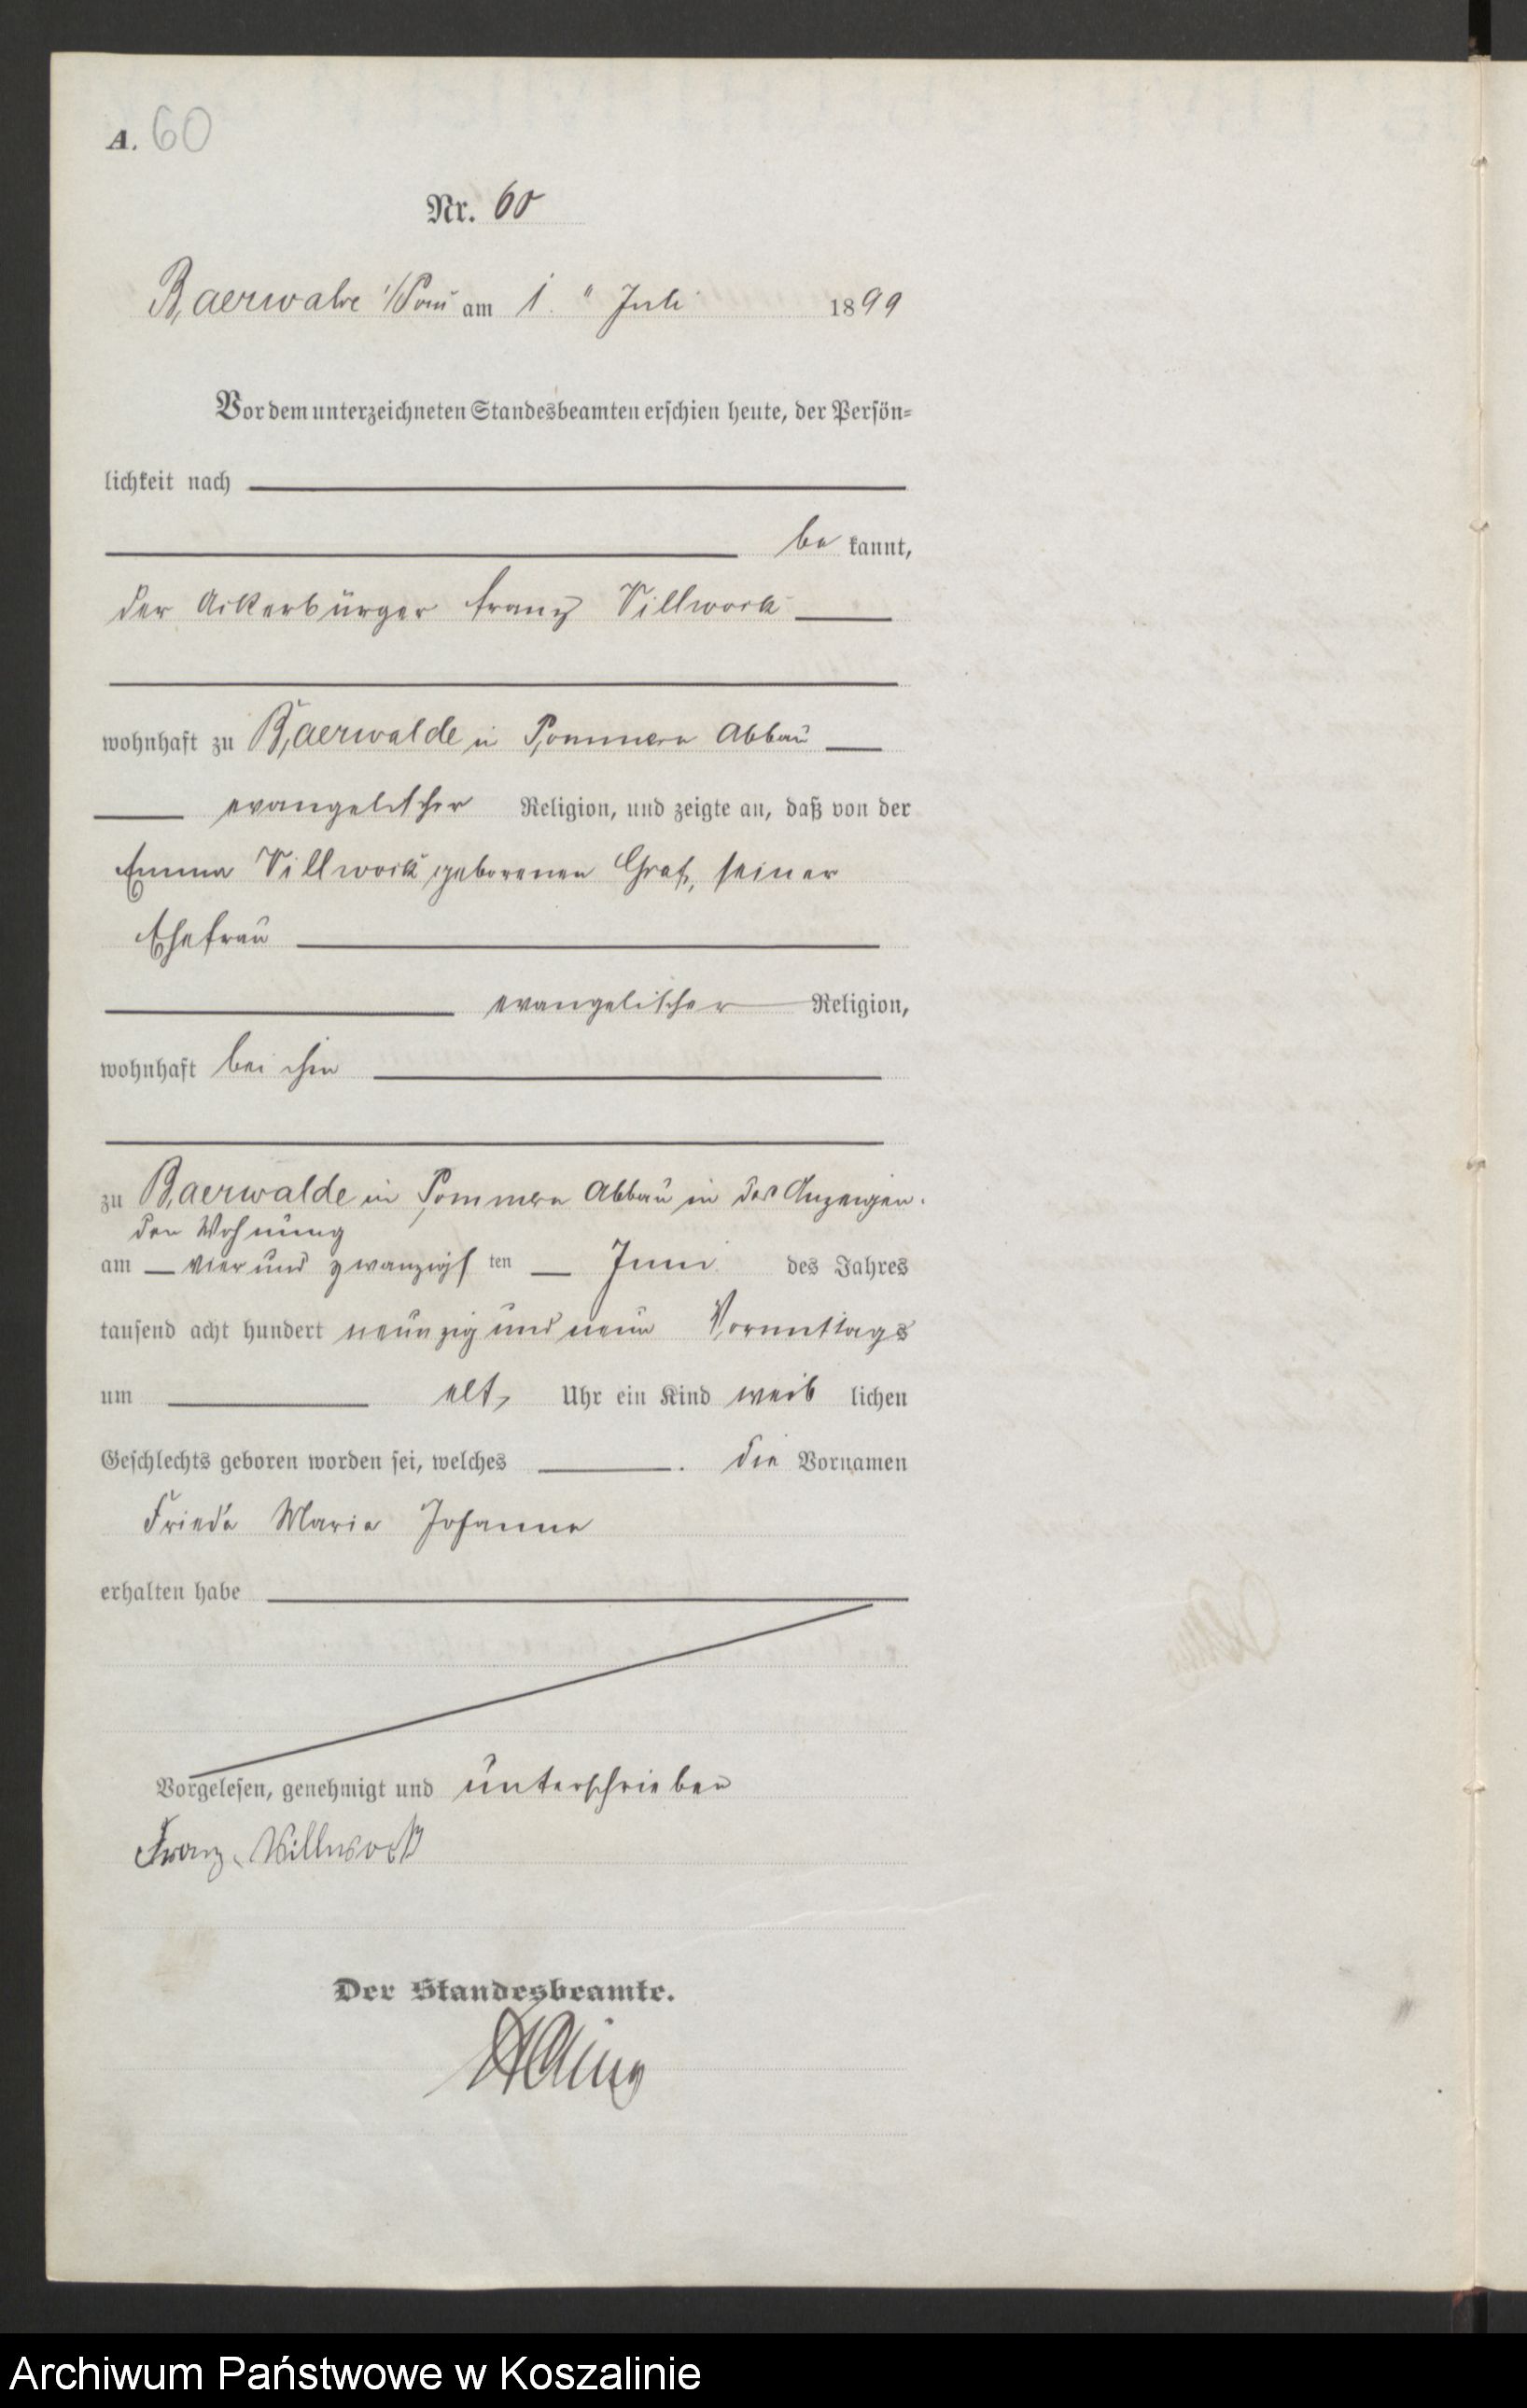 A. 60
Nr. 60
Baerwalde i/Pom am 1. " Juli 1899
Vor dem unterzeichneten Standesbeamten erschien heute, der Persön-
lichkeit nach
be kannt,
der Ackerbürger Franz Villwock
wohnhaft zu Baerwalde in Pommern Abbau
evangelischer Religion, und zeigte an, daß von der
Emma Villwock geborenen Graf, seiner
Ehefrau
evangelischer Religion,
wohnhaft bei ihm
zu Baerwalde in Pommern Abbau in des Anzeigen-
den Wohnung
am vier und zwanzigsten Juni des Jahres
tausend acht hundert neunzig und neun Vormittags
um elf, Uhr ein Kind weib lichen
Geschlechts geboren worden sei, welches die Vornamen
Frieda Marie Johanne
erhalten habe
Vorgelesen, genehmigt und unterschrieben
Franz Villwock
Der Standesbeamte.
Archiwum Państwowe w Koszalinie